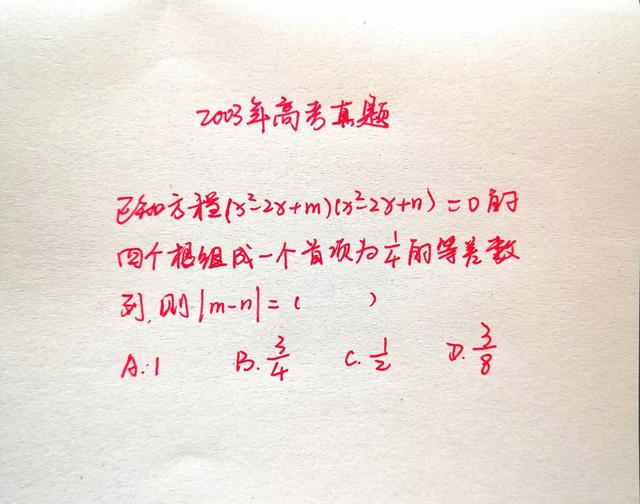 2003年高考真题
已知方程(x²-2x+m)(x²-2x+n)=0的
四个根组成一个首项为1/4的等差数
列,则|m-n|=( )
A.1 B.3/4 C.1/2 D.3/8